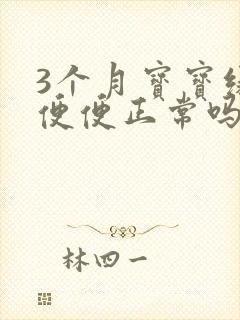 3个月宝宝
便便正常吗
林四一